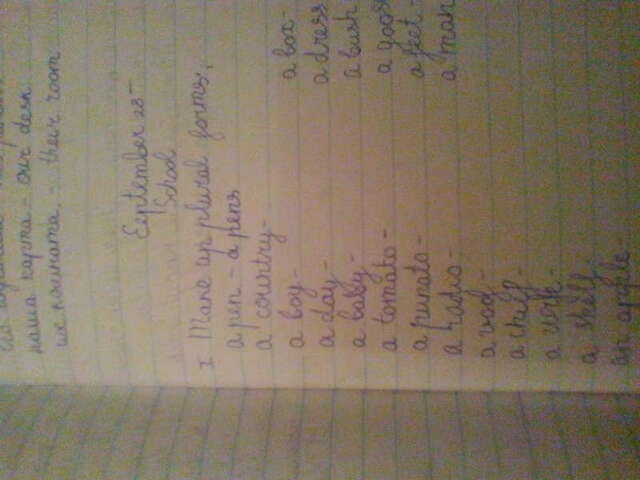 наша парта - our desk
их комната. - their room
Eeptember 23
School
I Make up plural forms.
a pen - a pens
a country-
a boy- a box-
a day- a dress
a baby- a bush
a tomato- a goos
a punato- a feet-
a radio- a man
a
a cheff-
a
a shelf
an apple-